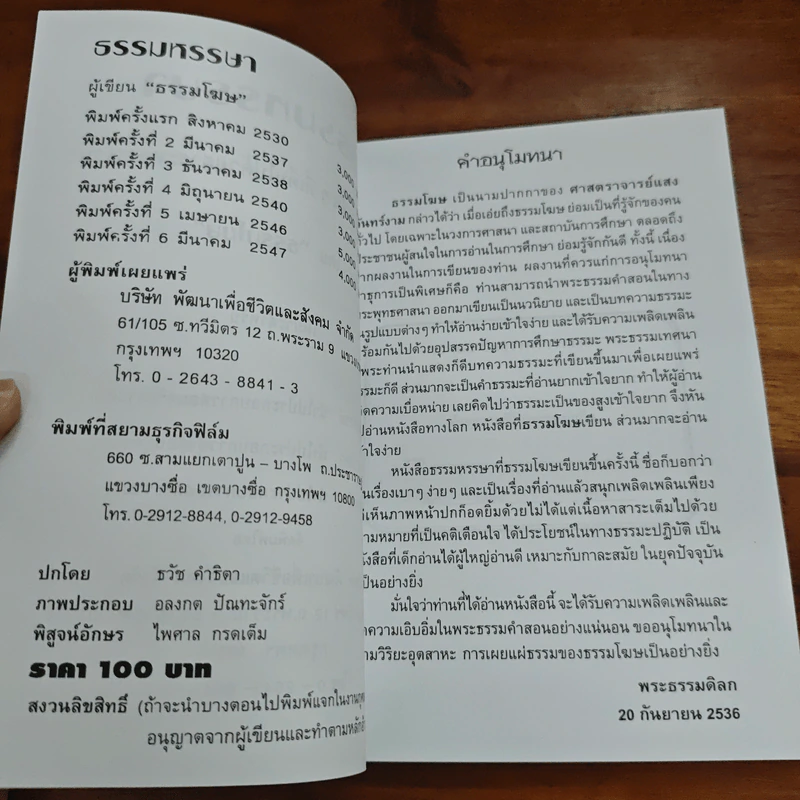 ธรรมหรรษา
ผู้เขียน "ธรรมโฆษ"
พิมพ์ครั้งแรก สิงหาคม 2530
พิมพ์ครั้งที่ 2 มีนาคม 2537 3,000
พิมพ์ครั้งที่ 3 ธันวาคม 2538 3,000
พิมพ์ครั้งที่ 4 มิถุนายน 2540 3,000
พิมพ์ครั้งที่ 5 เมษายน 2546 5,000
พิมพ์ครั้งที่ 6 มีนาคม 2547 4,000
ผู้พิมพ์เผยแพร่
บริษัท พัฒนาเพื่อชีวิตและสังคม จำกัด
61/105 ซ.ทวีมิตร 12 ถ.พระราม 9
กรุงเทพฯ 10320
โทร. 0 - 2643 - 8841 - 3
พิมพ์ที่สยามธุรกิจฟิล์ม
660 ซ.สามแยกเตาปูน – บางโพ
แขวงบางซื่อ เขตบางซื่อ กรุงเทพฯ 10800
โทร. 0-2912-8844, 0-2912-9458
ปกโดย ธวัช คำธิตา
ภาพประกอบ อลงกต ปัณทะจักร์
พิสูจน์อักษร ไพศาล กรดเต็ม
ราคา 100 บาท
สงวนลิขสิทธิ์ (ถ้าจะนำบางตอนไปพิมพ์แจกในงาน
อนุญาตจากผู้เขียนและทำตาม
คำอนุโมทนา
ธรรมโฆษ เป็นนามปากกาของ ศาสตราจารย์แสง
จันทร์งาม กล่าวได้ว่า เมื่อเอ่ยถึงธรรมโฆษ ย่อมเป็นที่รู้จักของคน
ทั่วไป โดยเฉพาะในวงการศาสนา และสถาบันการศึกษา ตลอดถึง
ประชาชนผู้สนใจในการอ่านในการศึกษา ย่อมรู้จักกันดี ทั้งนี้ เนื่อง
จากผลงานในการเขียนของท่าน ผลงานที่ควรแก่การอนุโมทนา
สาธุการเป็นพิเศษก็คือ ท่านสามารถนำพระธรรมคำสอนในทาง
พระพุทธศาสนา ออกมาเขียนเป็นนวนิยาย และเป็นบทความธรรมะ
ในรูปแบบต่างๆ ทำให้อ่านง่ายเข้าใจง่าย และได้รับความเพลิดเพลิน
พร้อมกันไปด้วยอุปสรรคปัญหาการศึกษาธรรมะ พระธรรมเทศนา
ที่พระท่านนำแสดงก็ดีบทความธรรมะที่เขียนขึ้นมาเพื่อเผยแพร่
ธรรมะก็ดี ส่วนมากจะเป็นคำธรรมะที่อ่านยากเข้าใจยาก ทำให้ผู้อ่าน
เกิดความเบื่อหน่าย เลยคิดไปว่าธรรมะเป็นของสูงเข้าใจยาก จึงหัน
ไปอ่านหนังสือทางโลก หนังสือที่ธรรมโฆษเขียน ส่วนมากจะอ่าน
เข้าใจง่าย
หนังสือธรรมหรรษาที่ธรรมโฆษเขียนขึ้นครั้งนี้ ชื่อก็บอกว่า
เป็นเรื่องเบาๆ ง่ายๆ และเป็นเรื่องที่อ่านแล้วสนุกเพลิดเพลินเพียง
แต่เห็นภาพหน้าปกก็อดยิ้มด้วยไม่ได้แต่เนื้อหาสาระเต็มไปด้วย
ความหมายที่เป็นคติเตือนใจ ได้ประโยชน์ในทางธรรมะปฏิบัติ เป็น
หนังสือที่เด็กอ่านได้ผู้ใหญ่อ่านดี เหมาะกับกาละสมัย ในยุคปัจจุบัน
เป็นอย่างยิ่ง
มั่นใจว่าท่านที่ได้อ่านหนังสือนี้ จะได้รับความเพลิดเพลินและ
ความเอิบอิ่มในพระธรรมคำสอนอย่างแน่นอน ขออนุโมทนาใน
ความวิริยะอุตสาหะ การเผยแผ่ธรรมของธรรมโฆษเป็นอย่างยิ่ง
พระธรรมดิลก
20 กันยายน 2536